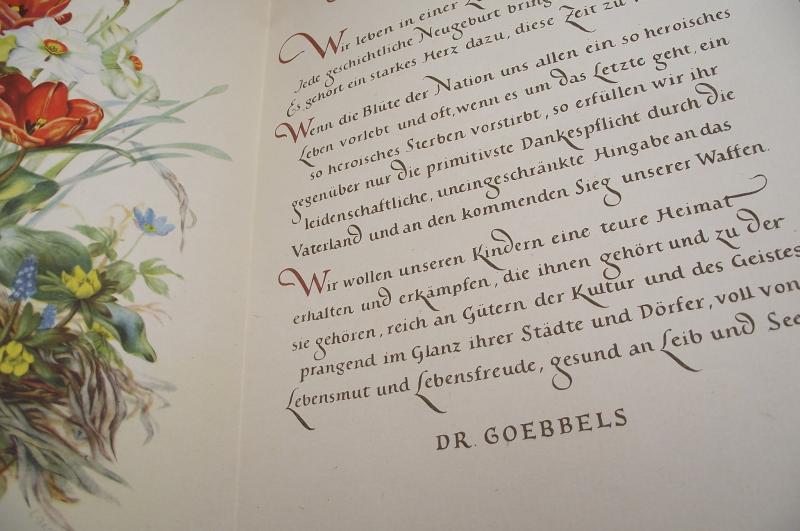 Wir leben in einer
Jede geschichtliche Neugeburt bring
Es gehört ein starkes Herz dazu, diese Zeit zu
Wenn die Blüte der Nation uns allen ein so heroisches
Leben vorlebt und oft, wenn es um das Letzte geht, ein
so heroisches Sterben vorstirbt, so erfüllen wir ihr
gegenüber nur die primitivste Dankespflicht durch die
leidenschaftliche, uneingeschränkte Hingabe an das
Vaterland und an den kommenden Sieg unserer Waffen.
Wir wollen unseren Kindern eine teure Heimat
erhalten und erkämpfen, die ihnen gehört und zu der
sie gehören, reich an Gütern der Kultur und des Geistes
prangend im Glanz ihrer Städte und Dörfer, voll von
Lebensmut und Lebensfreude, gesund an Leib und See
DR. GOEBBELS